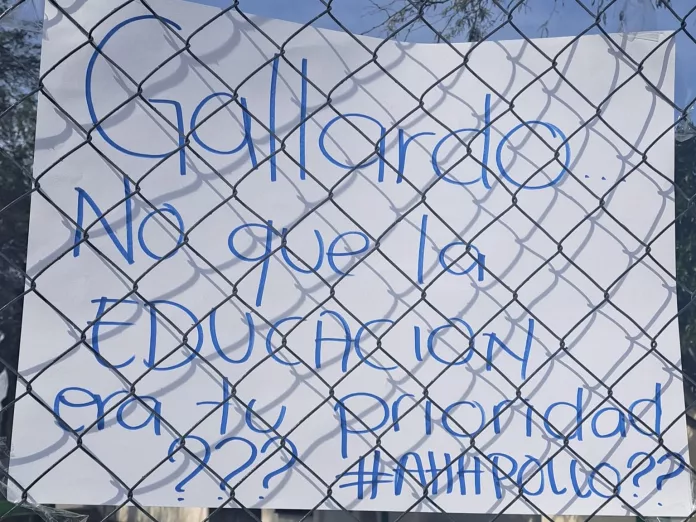 Gallardo..
No que la
EDUCACION
era tu prioridad
??? #AHHPOLLO??